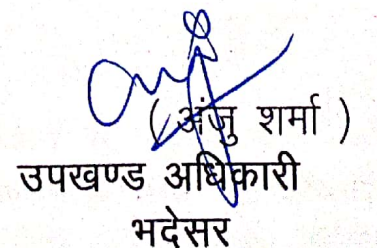 ( अंजु शर्मा )
उपखण्ड अधिकारी
भदेसर